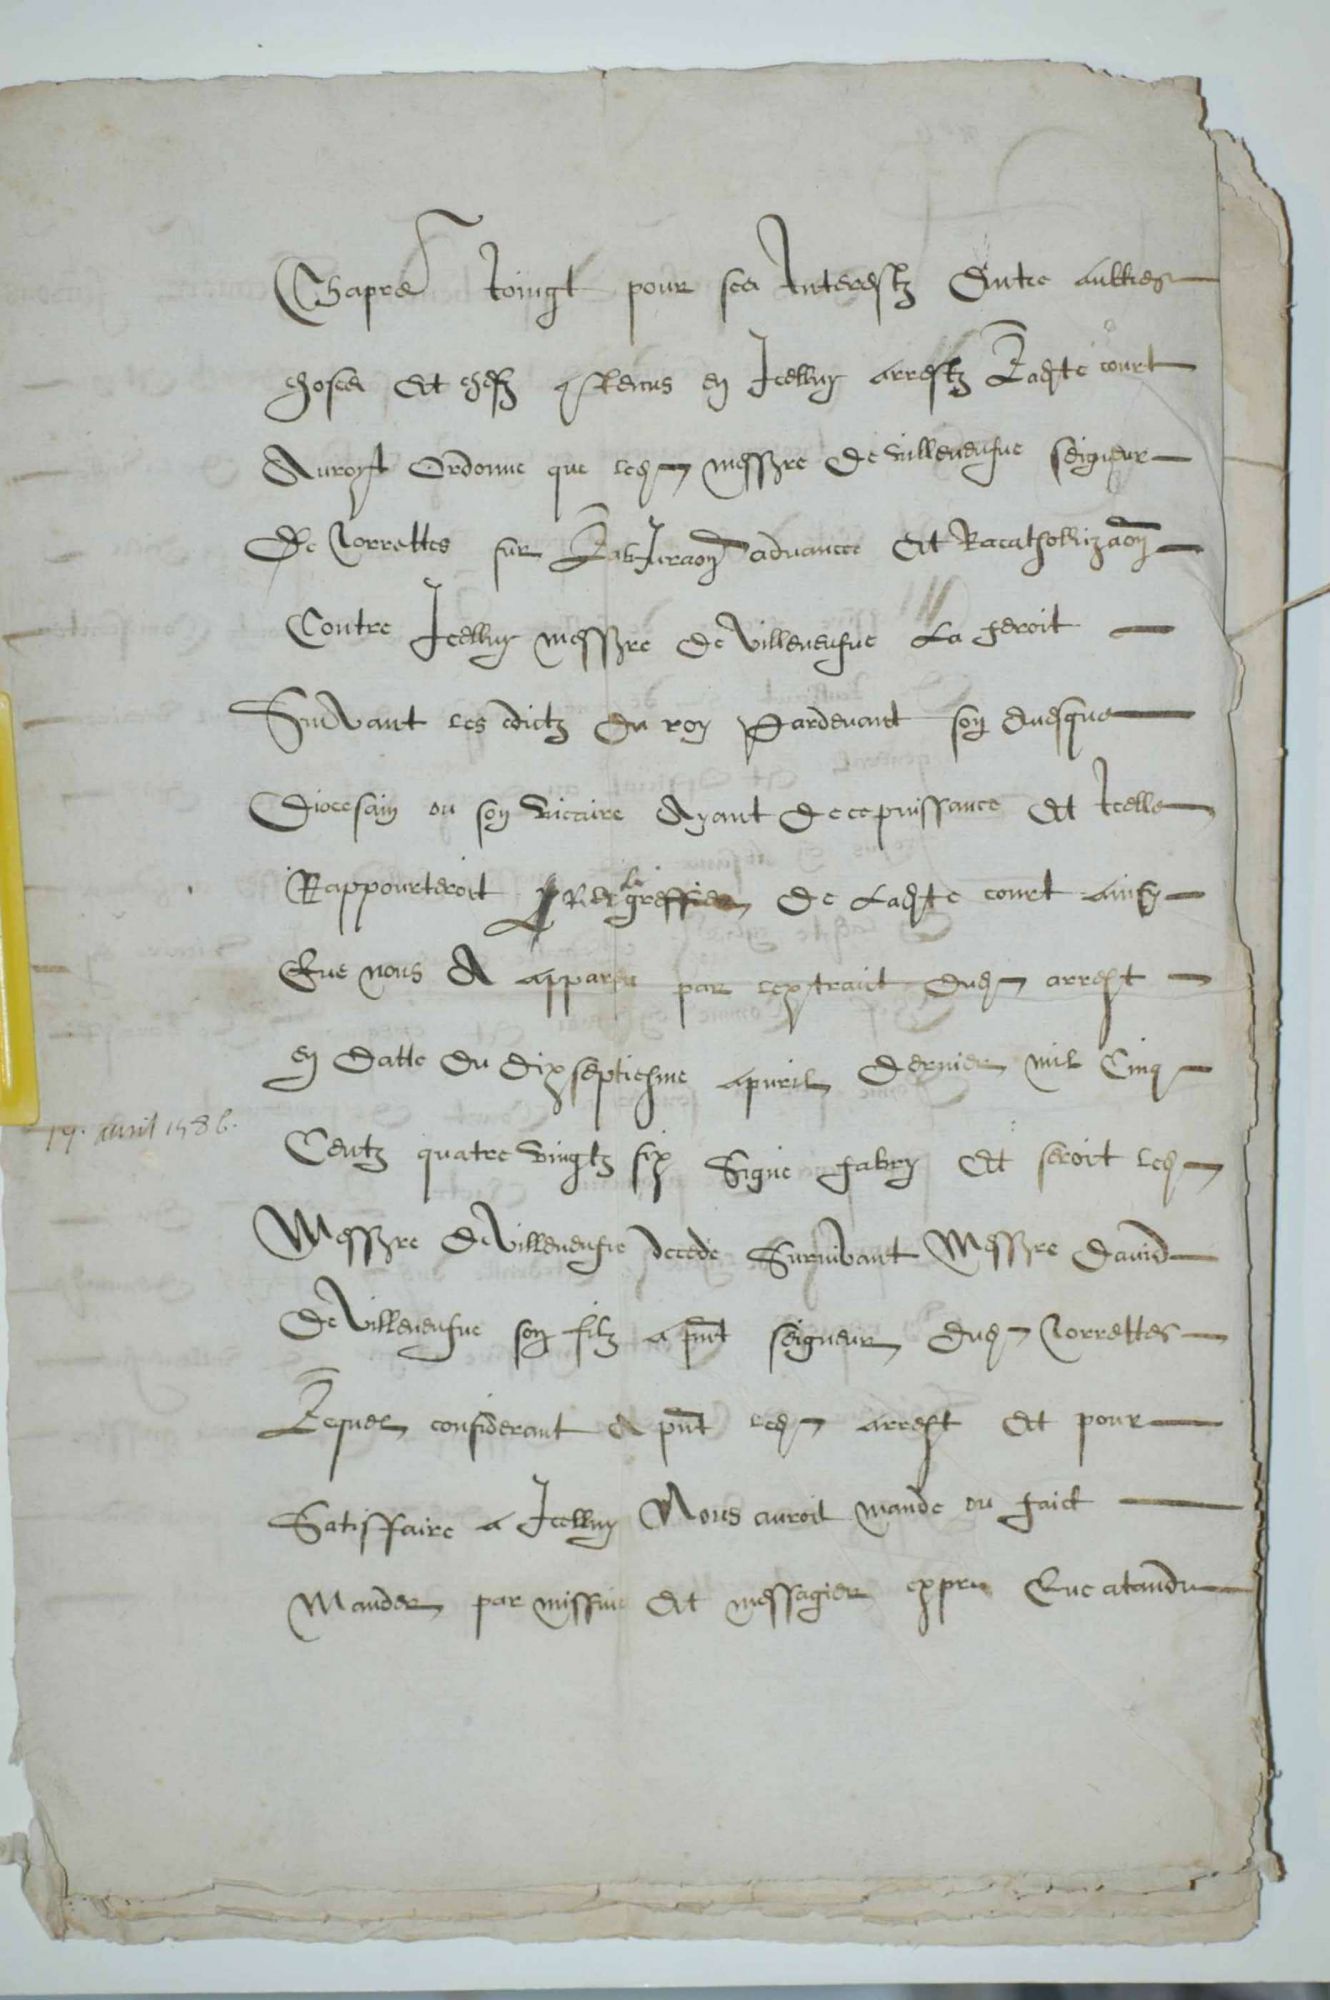 Chapre Joingt pour ses Interestz Entre aultres
choses Et chefz contenus en Icelluy arrestz Ladte court
Auroyt Ordonne que led messire de villeneufve seigneur
De Torrettes sur Labjuraon advancee Et Racatholizaon
Contre Icelluy messire de villeneufve La feroit
Suivant les edictz du roy Pardevant son evesque
Diocesain ou son vicaire Ayant de ce puissance Et Icelle
Rapporteroit Rer le greffier de Ladte court ainsy
Que nous A apparu par lextraict dud arrest
en datte du dixseptiesme apvril dernier mil Cinq
17. avril 1586.
Centz quatre vingtz six Signe fabry Et seroit led
Messire de Villeneufve decede Survivant Messire david
De Villeneufve son filz a pnt seigneur dud Torrettes
Lequel considerant A pnt led arrest Et pour
Satisffaire a Icelluy Nous auroit mande ou faict
Mander par missive Et messagier expres Que atandu